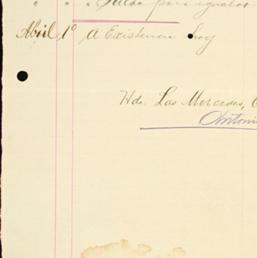 " " Saldo para igualar
Abril 1º A Existencia hoy
Hda. Las Mercedes,
Antonio